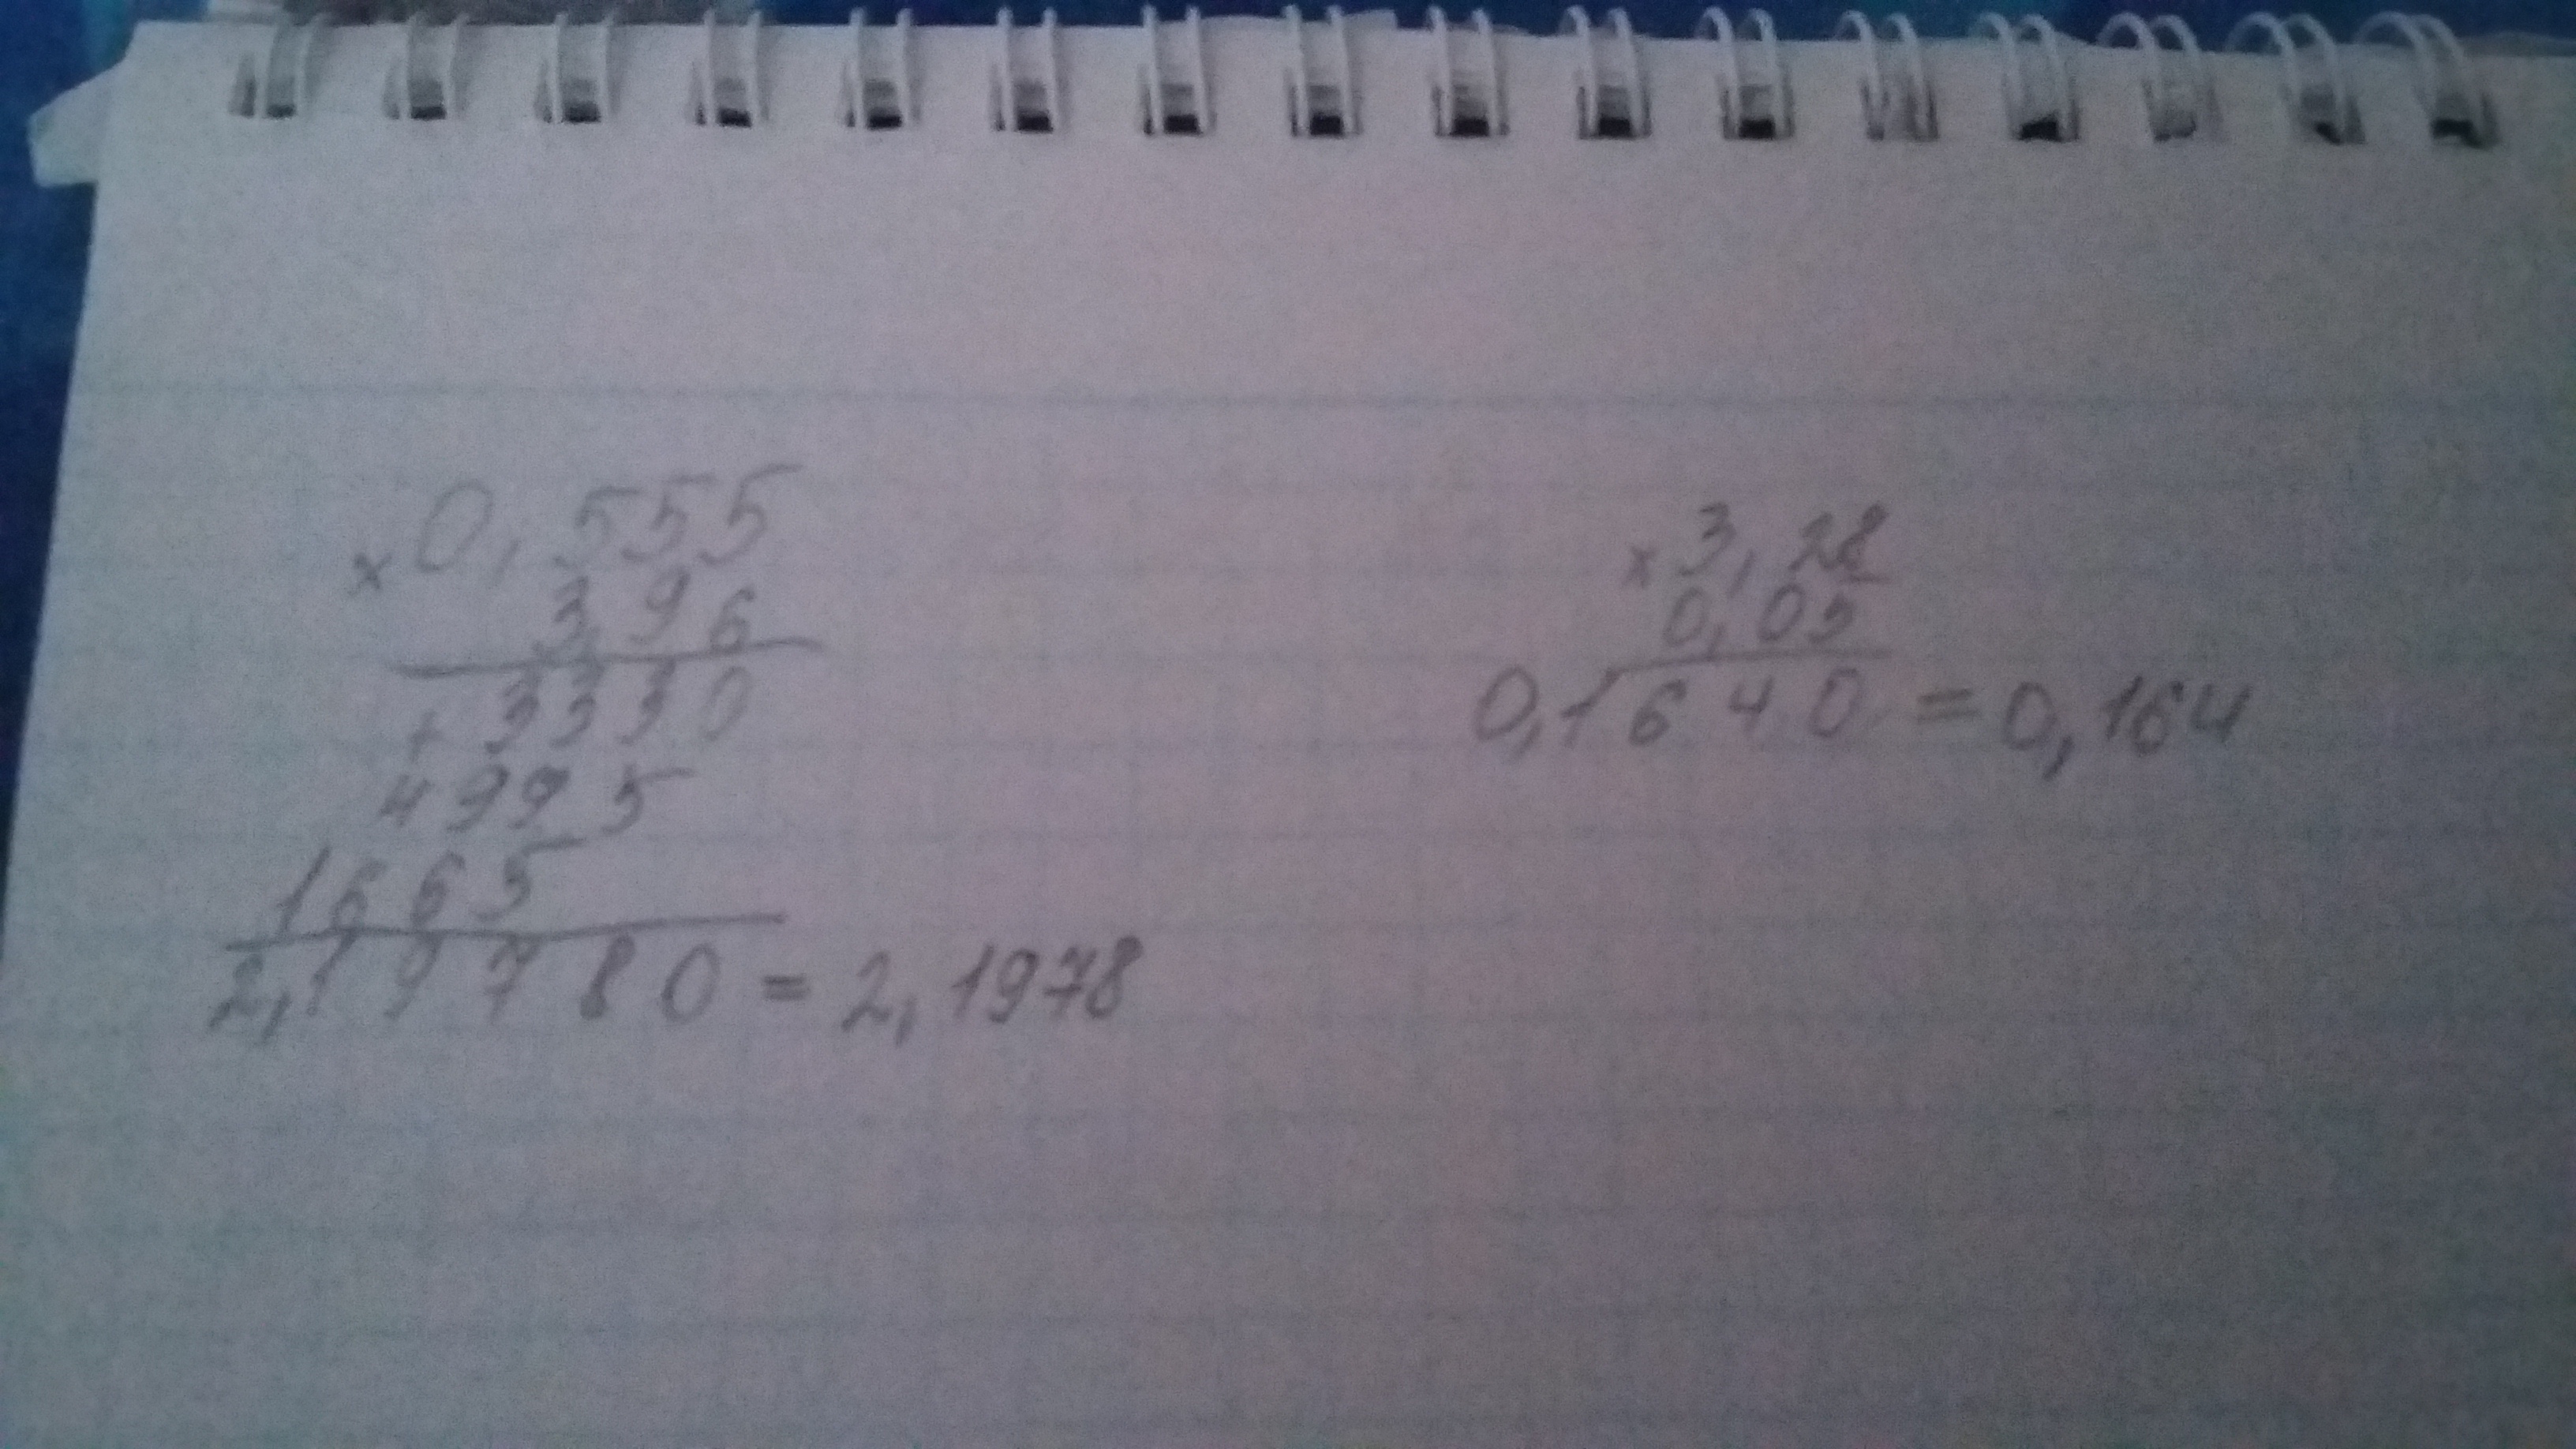 × 0,555
3,96
+ 3330
4995
1665
2,19780 = 2,1978
× 3,28
0,05
0,1640 = 0,164